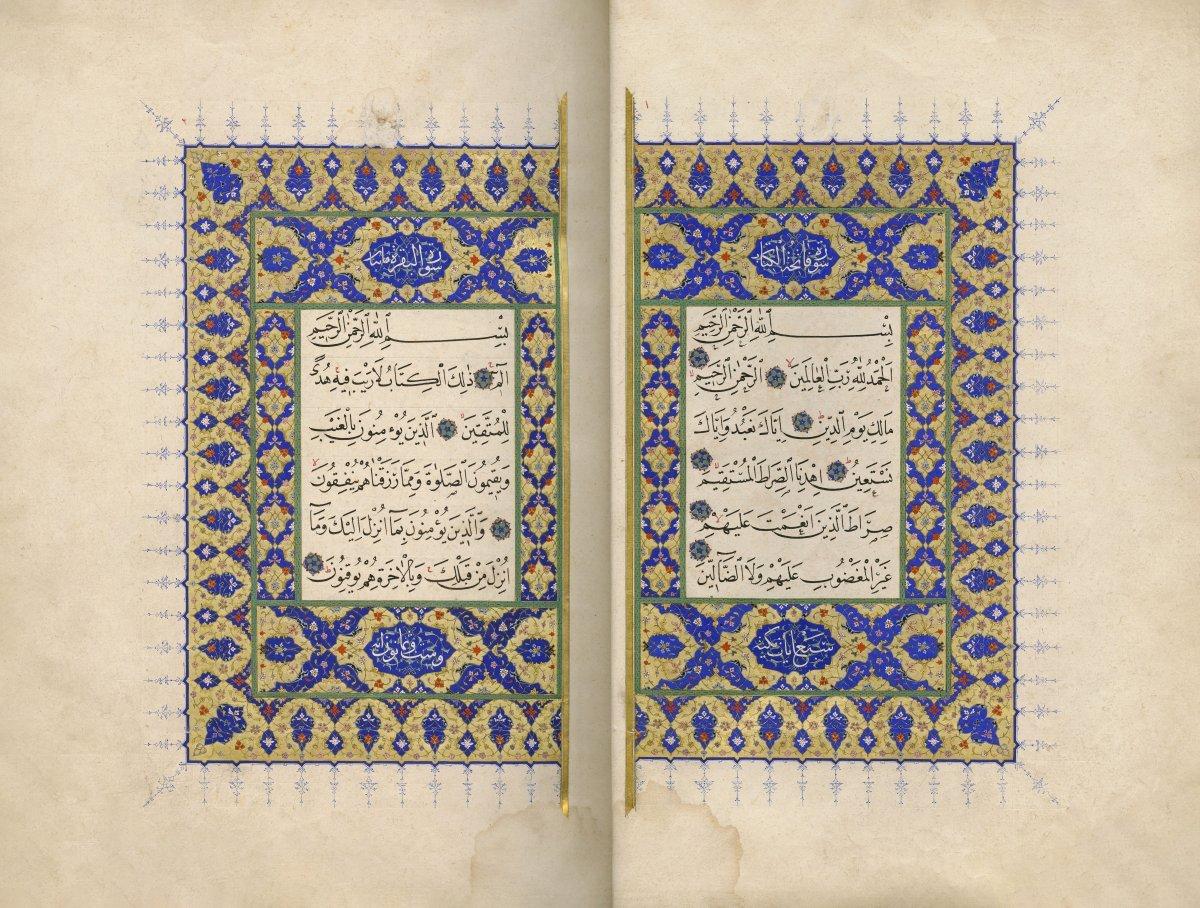 سورة فاتحة الكتاب
بِسْمِ اللّٰهِ الرَّحْمٰنِ الرَّحِيمِ
اَلْحَمْدُ لِلّٰهِ رَبِّ الْعَالَمِينَ اَلرَّحْمٰنِ الرَّحِيمِ
مَالِكِ يَوْمِ الدِّينِ اِيَّاكَ نَعْبُدُ وَاِيَّاكَ
نَسْتَعِينُ اِهْدِنَا الصِّرَاطَ الْمُسْتَقِيمَ
صِرَاطَ الَّذِينَ اَنْعَمْتَ عَلَيْهِمْ
غَيْرِ الْمَغْضُوبِ عَلَيْهِمْ وَلَا الضَّٓالِّينَ
سبع ايات مكية
سورة البقرة مائتا
بِسْمِ اللّٰهِ الرَّحْمٰنِ الرَّحِيمِ
الٓمٓ ذٰلِكَ الْكِتَابُ لَا رَيْبَ فِيهِ هُدًى
لِلْمُتَّقِينَ اَلَّذِينَ يُؤْمِنُونَ بِالْغَيْبِ
وَيُقِيمُونَ الصَّلٰوةَ وَمِمَّا رَزَقْنَاهُمْ يُنْفِقُونَ
وَالَّذِينَ يُؤْمِنُونَ بِمَٓا اُنْزِلَ اِلَيْكَ وَمَٓا
اُنْزِلَ مِنْ قَبْلِكَ وَبِالْاٰخِرَةِ هُمْ يُوقِنُونَ
وست وثمانون اية